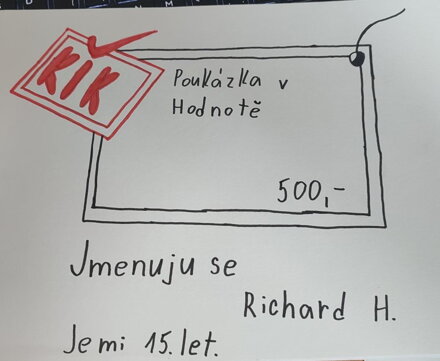 KIK
Poukázka v
Hodnotě
500,-
Jmenuju se
Richard H.
Je mi 15. let.